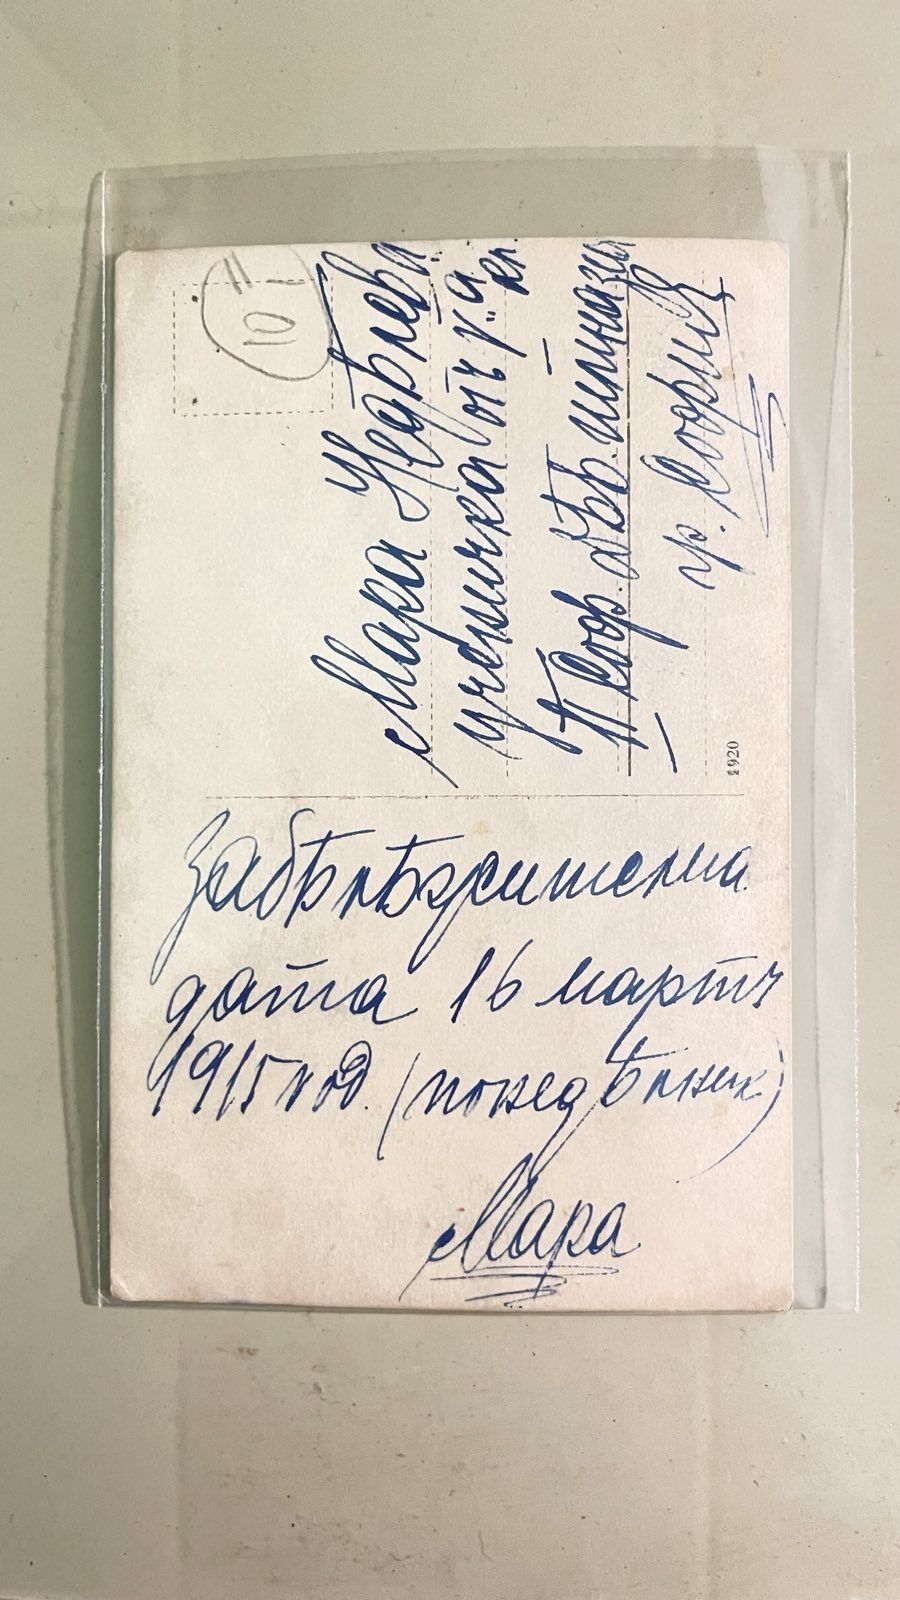 Забѣлѣжителна
дата 16 мартъ
1915 год. (понедѣлник)
Мара
10
Мара Недѣлева.
ученичка отъ V."а кл.
II Соф. дѣв. гимназия
гр. София
1920